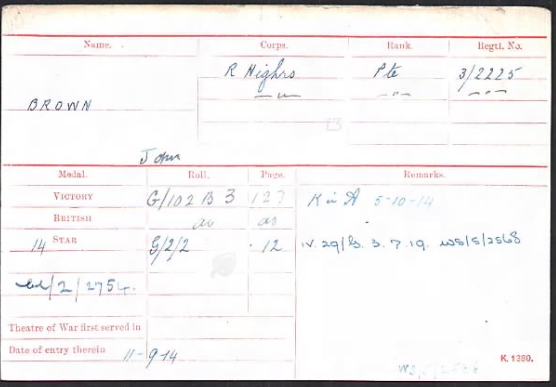 Name. Corps. Rank. Regtl. No.
R Highrs Pte 3/2225
— " — — " — — " —
BROWN
John
Medal. Roll. Page. Remarks.
VICTORY G/102 B 3 127 K in A 5-10-14
BRITISH do do
14 STAR G/2/2 12 IV. 29/B. 3. 7. 19. WS/5/2568
/2/2754.
Theatre of War first served in
Date of entry therein 11-9-14
K. 1380.